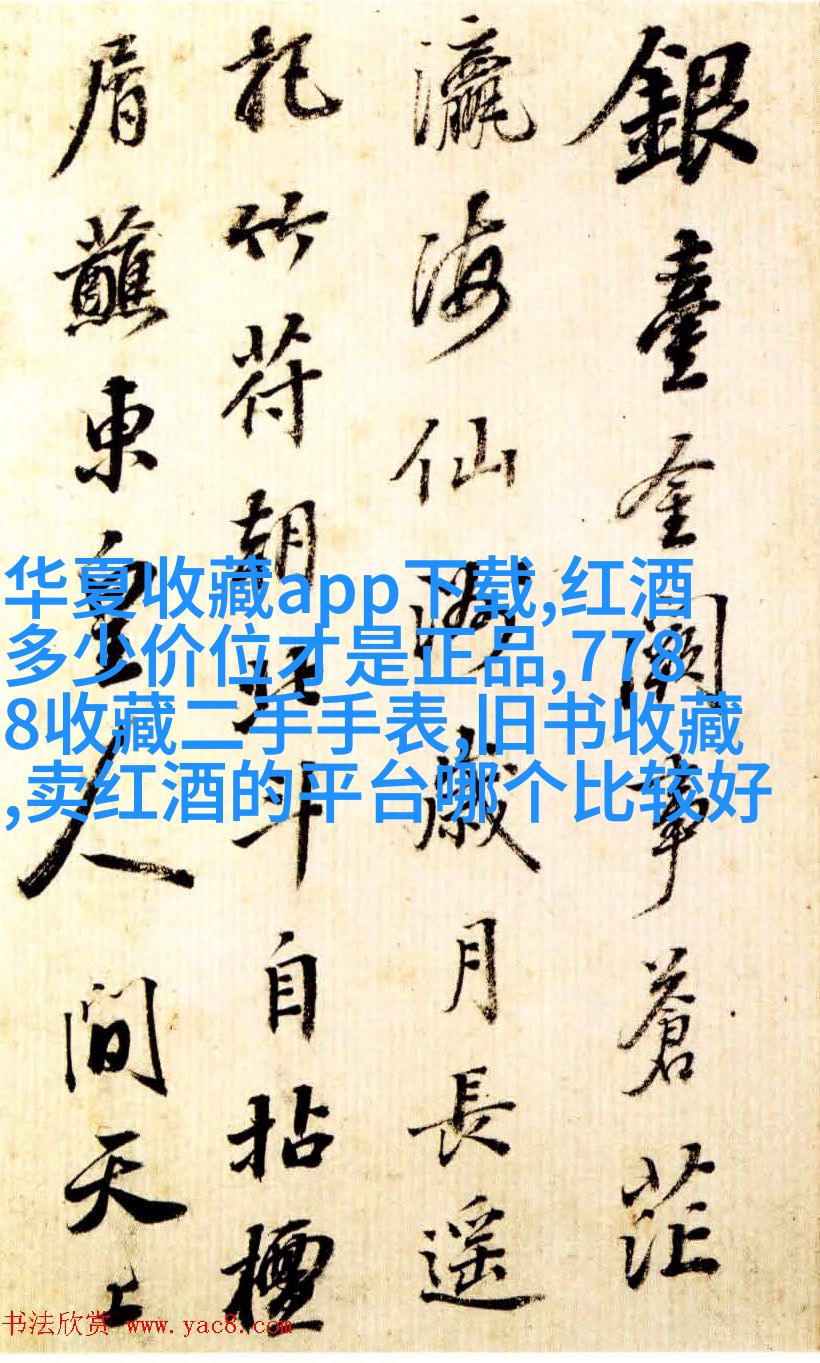 銀臺金闕事蒼茫
瀛海仙歲月長遥
記竹符朝北斗自拈檀
屑蘸東皇人間天上
华夏收藏app下载,红酒
多少价位才是正品,778
8收藏二手手表,旧书收藏
,卖红酒的平台哪个比较好
书法欣赏 www.yac8.com